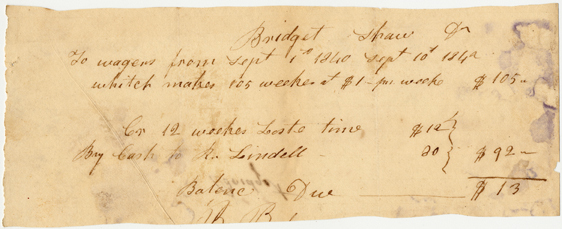 Bridget Shaw Dr
To wagers from Sept 1st 1840 Sept 10th 1842
whitch makes 105 weekes at $1- per weeke $105-
Cr 12 weekes Loste time $12
By Cash to R. Lindell - 80 $92-
Balence Due $13